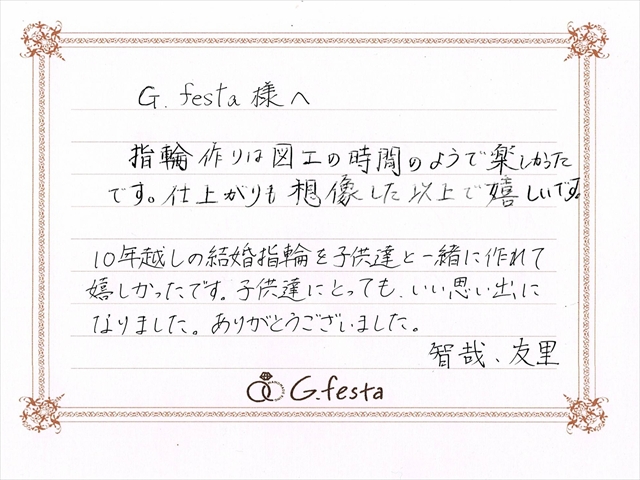 G.festa様へ
指輪作りは図工の時間のようで楽しかった
です。仕上がりも想像した以上で嬉しいです。
10年越しの結婚指輪を子供達と一緒に作れて
嬉しかったです。子供達にとっても、いい思い出に
なりました。ありがとうございました。
智哉、友里
G.festa